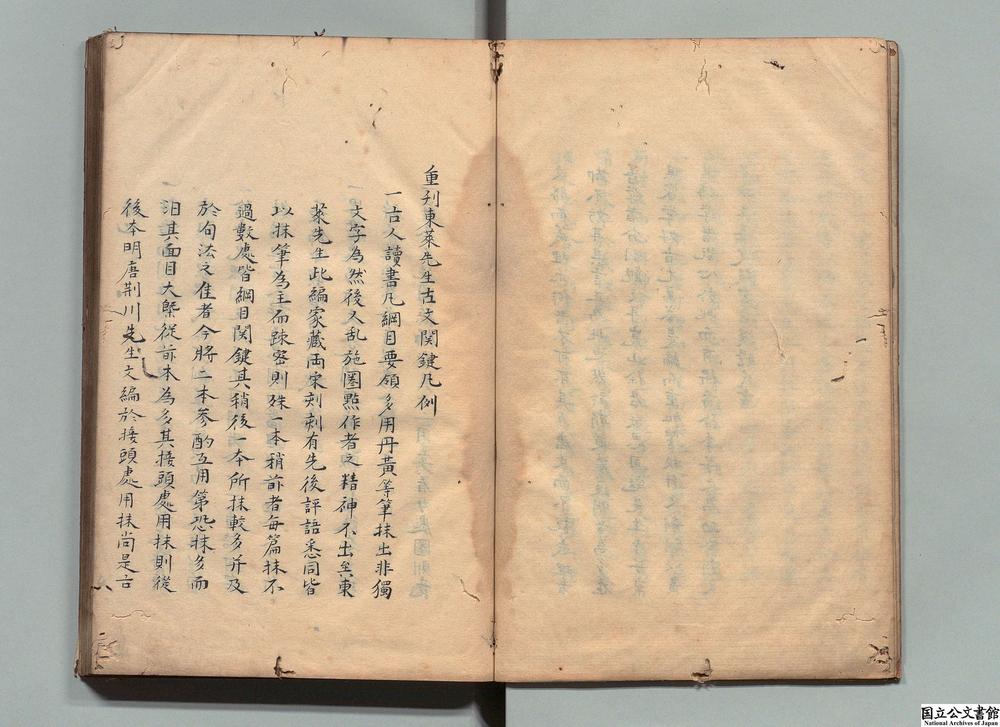 重刋東萊先生古文関鍵凡例
一古人讀書凡綱目要領多用丹黃等筆抹出非獨
文字為然後人乱施圏㸃作者之精神不出至東
萊先生此編家藏両宋刻刻有先後評語悉同皆
以抹筆為主而疎密則殊一本稍前者每篇抹不
過數處皆綱目関鍵其稍後一本所抹較多并及
於句法之佳者今將二本參酌互用第恐抹多而
汨其面目大槩從前本為多其接頭處用抹則從
後本明唐荊川先生文編於接頭處用抹尚是古
国立公文書館
National Archives of Japan